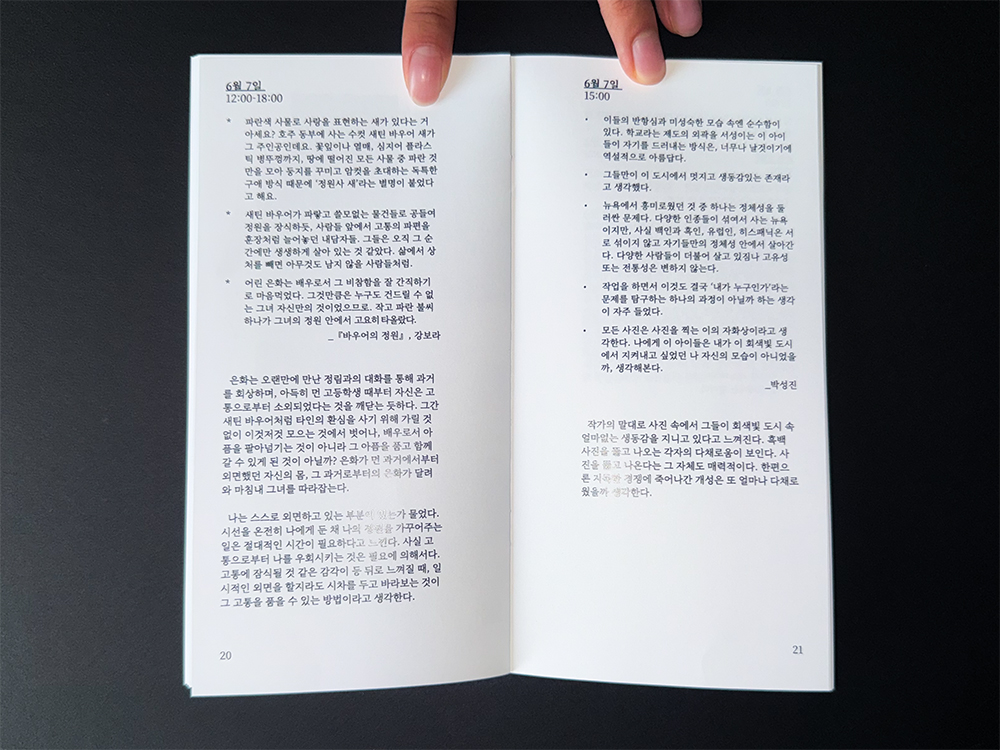 6월 7일
12:00-18:00
* 파란색 사물로 사랑을 표현하는 새가 있다는 거
아세요? 호주 동부에 사는 수컷 새틴 바우어 새가
그 주인공인데요. 꽃잎이나 열매, 심지어 플라스
틱 병뚜껑까지, 땅에 떨어진 모든 사물 중 파란 것
만을 모아 둥지를 꾸미고 암컷을 초대하는 독특한
구애 방식 때문에 ‘정원사 새’라는 별명이 붙었다
고 해요.
* 새틴 바우어가 파랗고 쓸모없는 물건들로 공들여
정원을 장식하듯, 사람들 앞에서 고통의 파편을
훈장처럼 늘어놓던 내담자들. 그들은 오직 그 순
간에만 생생하게 살아 있는 것 같았다. 삶에서 상
처를 빼면 아무것도 남지 않을 사람들처럼.
* 어린 은화는 배우로서 그 비참함을 잘 간직하기
로 마음먹었다. 그것만큼은 누구도 건드릴 수 없
는 그녀 자신만의 것이었으므로. 작고 파란 불씨
하나가 그녀의 정원 안에서 고요히타올랐다.
_『바우어의 정원』, 강보라
은화는 오랜만에 만난 정림과의 대화를 통해 과거
를 회상하며, 아득히 먼 고등학생 때부터 자신은 고
통으로부터 소외되었다는 것을 깨닫는 듯하다. 그간
새틴 바우어처럼 타인의 환심을 사기 위해 가릴 것
없이 이것저것 모으는 것에서 벗어나, 배우로서 아
픔을 팔아넘기는 것이 아니라 그 아픔을 품고 함께
갈 수 있게 된 것이 아닐까? 은화가 먼 과거에서부터
외면했던 자신의 몸, 그 과거로부터의 은화가 달려
와 마침내 그녀를 따라잡는다.
나는 스스로 외면하고 있는 부분이 있는가 물었다.
시선을 온전히 나에게 둔 채 나의 정원을 가꾸어주는
일은 절대적인 시간이 필요하다고 느낀다. 사실 고
통으로부터 나를 우회시키는 것은 필요에 의해서다.
고통에 잠식될 것 같은 감각이 등 뒤로 느껴질 때, 일
시적인 외면을 할지라도 시차를 두고 바라보는 것이
그 고통을 품을 수 있는 방법이라고 생각한다.
20
6월 7일
15:00
· 이들의 반항심과 미성숙한 모습 속엔 순수함이
있다. 학교라는 제도의 외곽을 서성이는 이 아이
들이 자기를 드러내는 방식은, 너무나 날것이기에
역설적으로 아름답다.
· 그들만이 이 도시에서 멋지고 생동감있는 존재라
고 생각했다.
· 뉴욕에서 흥미로웠던 것 중 하나는 정체성을 둘
러싼 문제다. 다양한 인종들이 섞여서 사는 뉴욕
이지만, 사실 백인과 흑인, 유럽인, 히스패닉은 서
로 섞이지 않고 자기들만의 정체성 안에서 살아간
다. 다양한 사람들이 더불어 살고 있짐나 고유성
또는 전통성은 변하지 않는다.
· 작업을 하면서 이것도 결국 ‘내가 누구인가’라는
문제를 탐구하는 하나의 과정이 아닐까 하는 생각
이 자주 들었다.
· 모든 사진은 사진을 찍는 이의 자화상이라고 생
각한다. 나에게 이 아이들은 내가 이 회색빛 도시
에서 지켜내고 싶었던 나 자신의 모습이 아니었을
까, 생각해본다.
_박성진
작가의 말대로 사진 속에서 그들이 회색빛 도시 속
얼마없는 생동감을 지니고 있다고 느껴진다. 흑백
사진을 뚫고 나오는 각자의 다채로움이 보인다. 사
진을 뚫고 나온다는 그 자체도 매력적이다. 한편으
론 지독한 경쟁에 죽어나간 개성은 또 얼마나 다채로
웠을까 생각한다.
21